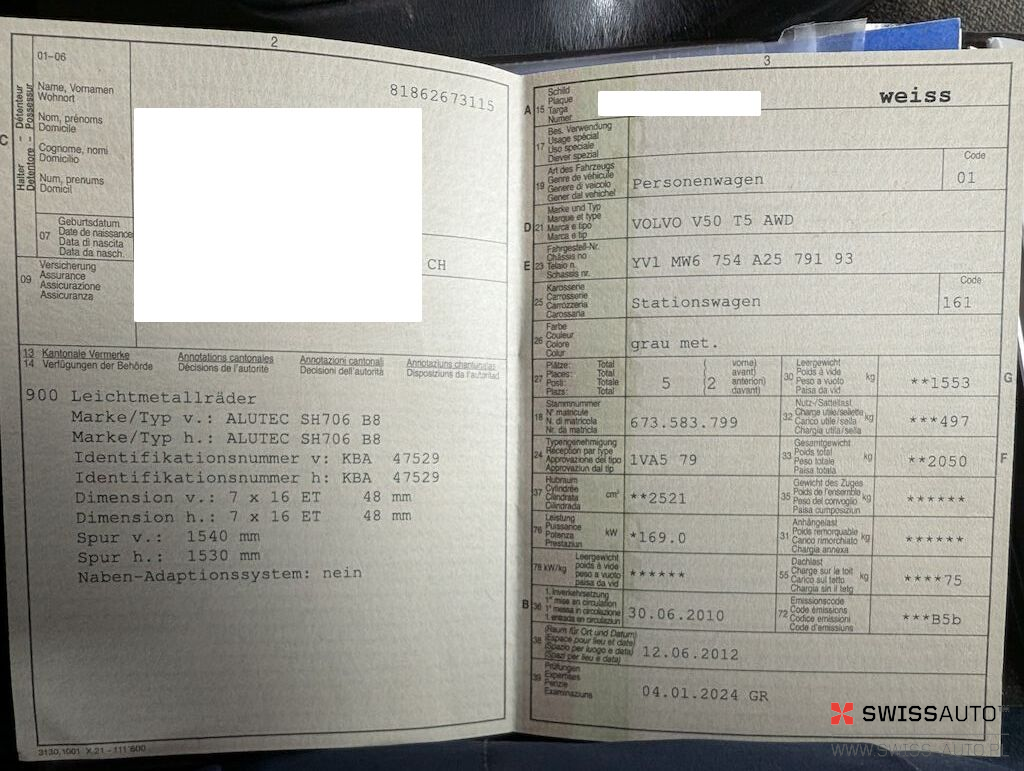 2
01-06
Halter - Détenteur
Detentore - Possessur
C
Name, Vornamen
Wohnort
Nom, prénoms
Domicile
Cognome, nomi
Domicilio
Num, prenums
Domicil
81862673115
07
Geburtsdatum
Date de naissance
Data di nascita
Data da nasch.
CH
09
Versicherung
Assurance
Assicurazione
Assicuranza
13 Kantonale Vermerke
14 Verfügungen der Behörde
Annotations cantonales
Décisions de l'autorité
Annotazioni cantonali
Decisioni dell'autorità
Annotaziuns chantunalas
Disposiziuns da l'autoritad
900 Leichtmetallräder
Marke/Typ v.: ALUTEC SH706 B8
Marke/Typ h.: ALUTEC SH706 B8
Identifikationsnummer v: KBA 47529
Identifikationsnummer h: KBA 47529
Dimension v.: 7 x 16 ET 48 mm
Dimension h.: 7 x 16 ET 48 mm
Spur v.: 1540 mm
Spur h.: 1530 mm
Naben-Adaptionssystem: nein
3130,1001 X.21 - 111'600
3
A 15
Schild
Plaque
Targa
Numer
weiss
17
Bes. Verwendung
Usage spécial
Uso speciale
Diever spezial
19
Art des Fahrzeugs
Genre de véhicule
Genere di veicolo
Gener dal vehichel
Personenwagen
Code
01
D 21
Marke und Typ
Marque et type
Marca e tipo
Marca e tip
VOLVO V50 T5 AWD
E 23
Fahrgestell-Nr.
Châssis no
Telaio n.
Schassis nr.
YV1 MW6 754 A25 791 93
25
Karosserie
Carrosserie
Carrozzeria
Carossaria
Stationswagen
Code
161
26
Farbe
Couleur
Colore
Colur
grau met.
27
Plätze: Total
Places: Total
Posti: Totale
Plazs: Total
5 (2
vorne)
avant)
anteriori)
davant)
30
Leergewicht
Poids à vide
Peso a vuoto
Paisa da vid
kg
**1553
G
18
Stammnummer
N° matricule
N. di matricola
Nr. da matricla
673.583.799
32
Nutz-/Sattellast
Charge utile/sellette
Carico utile/sella
Chargia utila/sella
kg
***497
24
Typengenehmigung
Réception par type
Approvazione del tipo
Approvaziun dal tip
1VA5 79
33
Gesamtgewicht
Poids total
Peso totale
Paisa totala
kg
**2050
F
37
Hubraum
Cylindrée
Cilindrata
Cilindrada
cm³
**2521
35
Gewicht des Zuges
Poids de l'ensemble
Peso del convoglio
Paisa cumposiziun
kg
******
76
Leistung
Puissance
Potenza
Prestaziun
kW
*169.0
31
Anhängelast
Poids remorquable
Carico rimorchiato
Chargia annexa
kg
******
78 kW/kg
Leergewicht
poids à vide
peso a vuoto
paisa da vid
******
55
Dachlast
Charge sur le toit
Carico sul tetto
Chargia sin il tetg
kg
****75
B 36
1. Inverkehrsetzung
1re mise en circulation
1a messa in circolazione
1. entrada en circulaziun
30.06.2010
72
Emissionscode
Code émissions
Codice emissioni
Code d'emissiuns
***B5b
38
(Raum für Ort und Datum)
(Espace pour lieu et date)
(Spazio per luogo e data)
(Spazi per lieu e data)
12.06.2012
39
Prüfungen
Expertises
Perizie
Examinaziuns
04.01.2024 GR
SWISSAUTO
WWW.SWISS-AUTO.PL